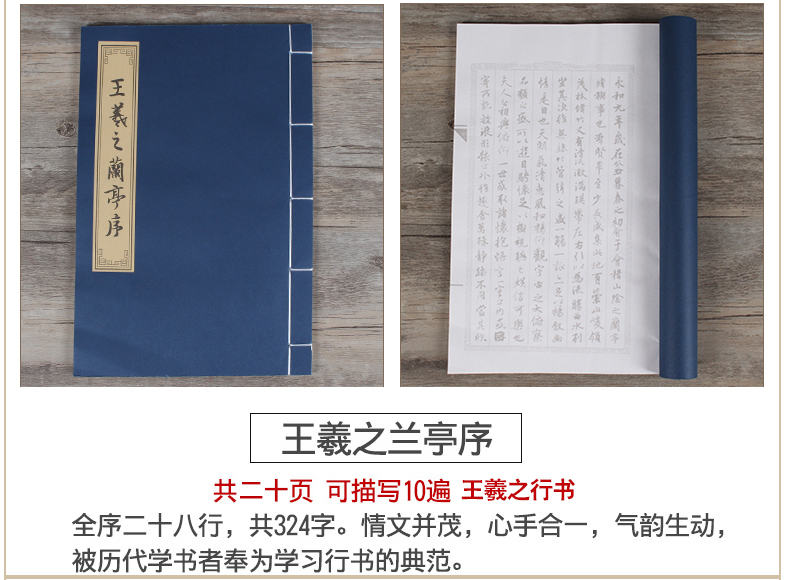 王羲之蘭亭序
永和九年歲在癸丑暮春之初會于會稽山陰之蘭亭
脩稧事也羣賢畢至少長咸集此地有崇山峻領
茂林脩竹又有清流激湍暎帶左右引以為流觴曲水列
坐其次雖無絲竹管弦之盛一觴一詠亦足以暢敘幽
情是日也天朗氣清惠風和暢仰觀宇宙之大俯察
品類之盛所以遊目騁懷足以極視聽之娛信可樂也
夫人之相與俯仰一世或取諸懷抱悟言一室之內或
王羲之兰亭序
共二十页 可描写10遍 王羲之行书
全序二十八行，共324字。情文并茂，心手合一，气韵生动，
被历代学书者奉为学习行书的典范。